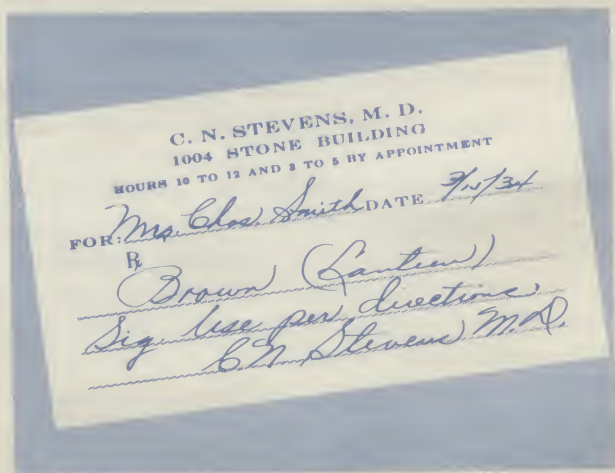 C. N. STEVENS, M. D.
1004 STONE BUILDING
HOURS 10 TO 12 AND 2 TO 5 BY APPOINTMENT
FOR: Mrs Chas. Smith DATE 3/15/34
℞
Brown (Lanteen)
Sig Use per directions.
C N Stevens M.D.